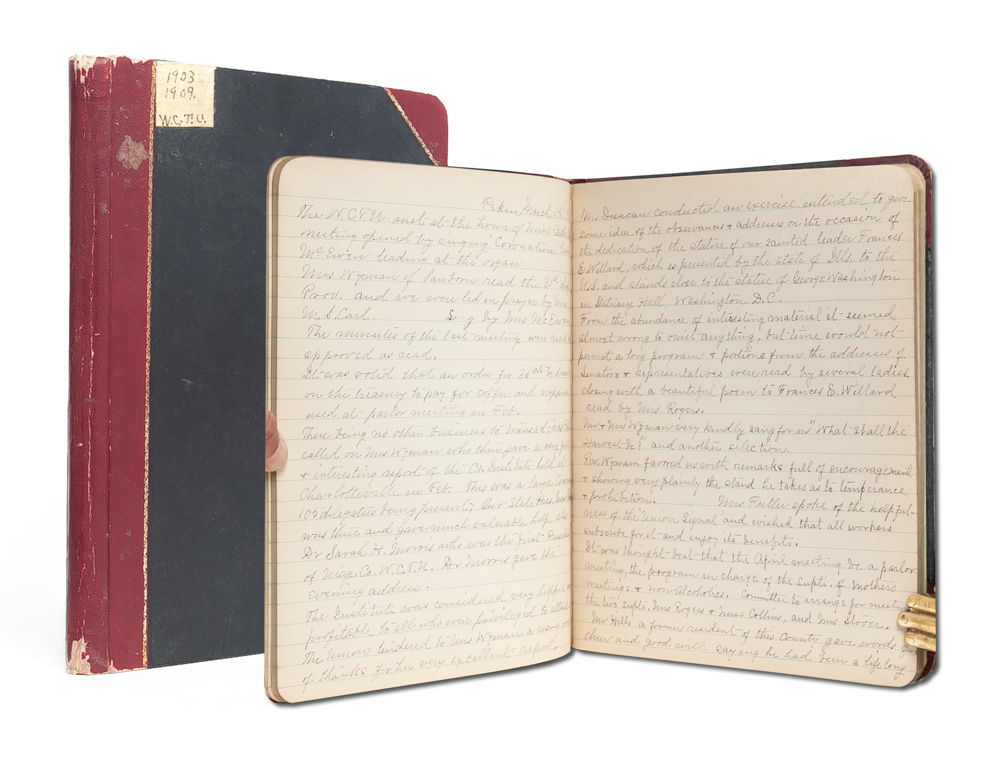 1903
1909.
W.C.T.U.
Pekin March
The W.C.T.U met at the home of
meeting opened by singing "Coronation"
McEwen leading at the organ.
Mrs Wyman of Sanborn read the 31st
Prov. and we were led in prayer by
M. L. Carl. Song by Mrs McEwen
The minutes of the last meeting were read
approved as read.
It was voted that an order for 36 cts be drawn
on the treasury to pay for coffee and
used at parlor meeting in Feb.
There being no other business to
called on Mrs Wyman who then gave a very
& interesting report of the Co. Institute held at
Charlotteville in Feb. This was a large
105 delegates being present. Our State Pres.
was there and gave much valuable help, also
Dr Sarah H. Morris who was the first President
of Niag. Co. W.C.T.U. Dr Morris gave the
evening address.
The Institute was considered very helpful
profitable to all who were privileged to attend
The Union tendered to Mrs Wyman a rising vote
of thanks for her very excellent report.
M. Duncan conducted an exercise intended to give
some idea of the observances & addresses on the occasion of
the dedication of the statue of our sainted leader Frances
E. Willard, which is presented by the state of Ills. to the
U.S. and stands close to the statue of George Washington
in Statuary Hall Washington D.C.
From the abundance of interesting material it seemed
almost wrong to omit anything, but time would not
permit a long program & portions from the addresses of
senators & representatives were read by several ladies
closing with a beautiful poem to Frances E. Willard
read by Mrs Rogers.
Mr & Mrs Wyman very kindly sang for us "What shall the
Harvest be?" and another selection.
Rev. Wyman favored us with remarks full of encouragement
& showing very plainly the stand he takes as to temperance
& prohibition. Mrs spoke of the helpful-
ness of the "Union Signal" and wished that all workers
subscribe for it and enjoy its benefits.
It was thought best that the April meeting be a parlor
meeting, the program in charge of the Supts. of Mothers
meetings & nonalcoholics. Committee to arrange for meeting
the two supts. Mrs Rogers & Miss Collins, and Mrs Stover.
Mr Hills a former resident of this County gave words of
cheer and good will saying he had been a life long